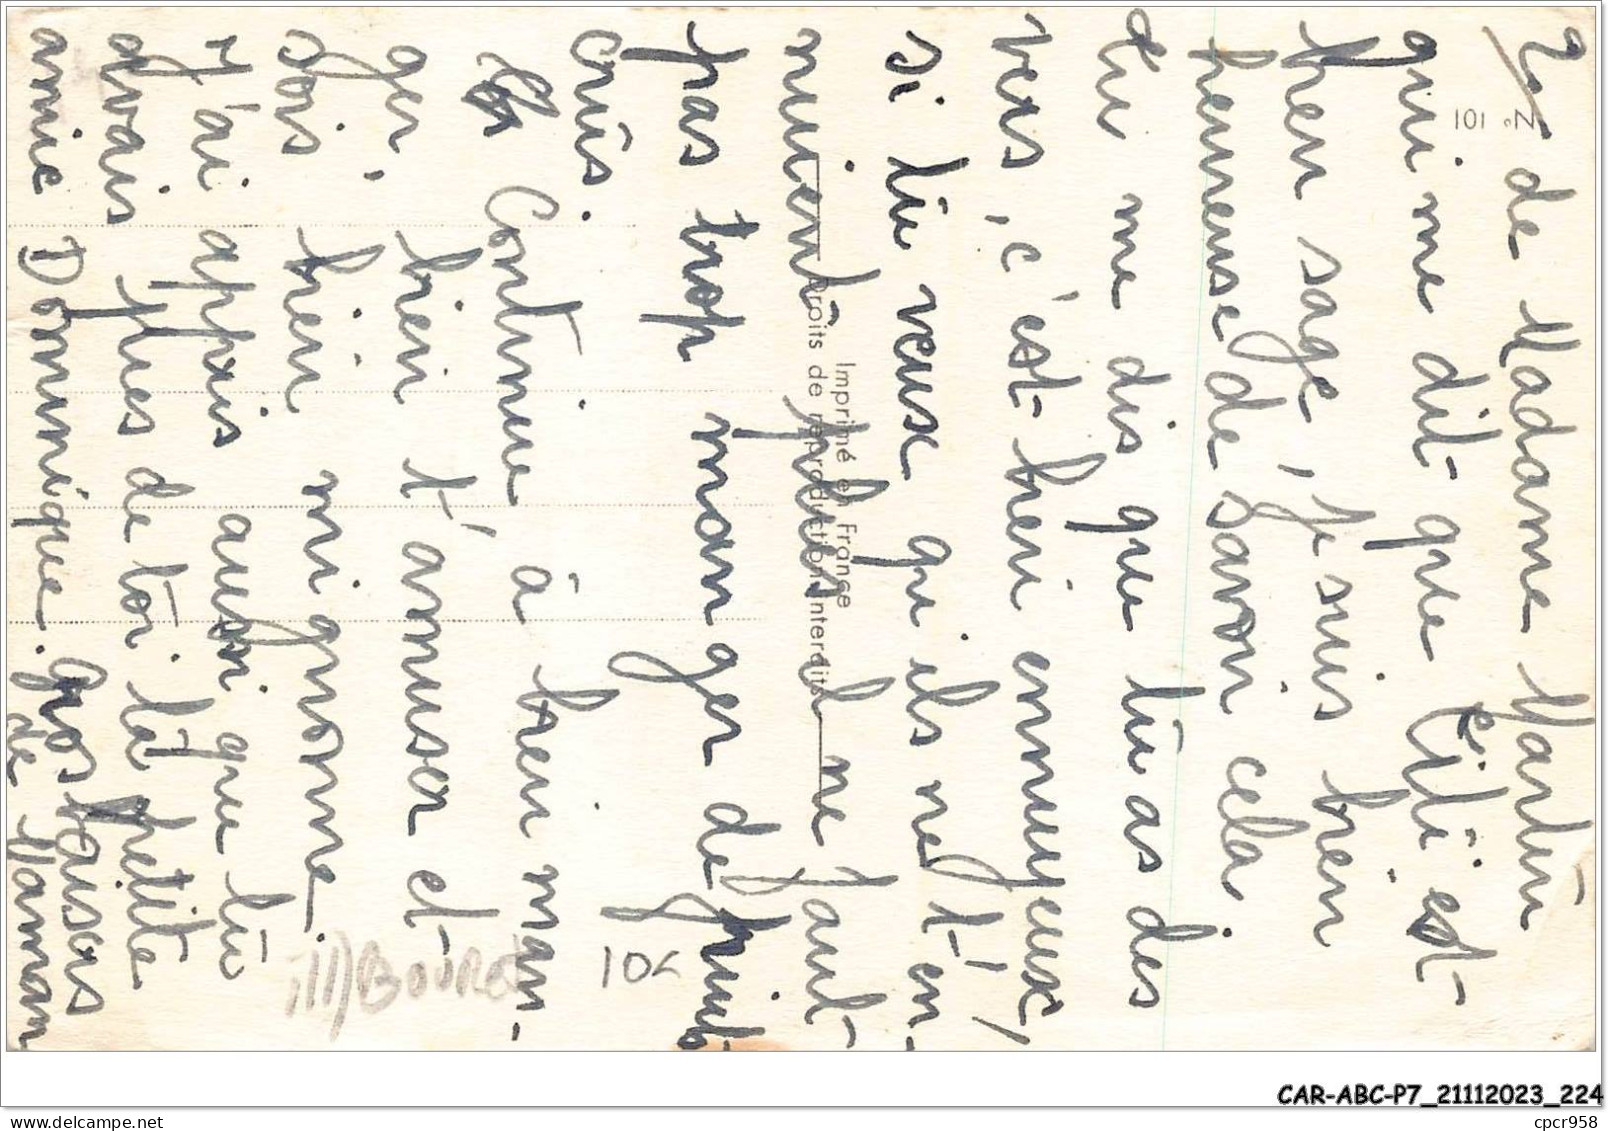 2/ de Madame Martin
qui me dit que Lili est
bien sage, je suis bien
heureuse de savoir cela
tu me dis que tu as des
vers, c'est bien ennuyeux,
si tu veux qu'ils ne t'en-
nuient plus il ne faut
pas trop manger de fruits
crûs.
Continue à bien man-
ger, bien t'amuser et
sois bien mignonne.
J'ai appris aussi que tu
avais près de toi ta petite
amie Dominique. Gros baisers
de Maman
N° 101
Imprimé en France
Droits de reproduction interdits
10€
ill) BOURET
CAR-ABC-P7_21112023_224
delcampe.net
cpcr958